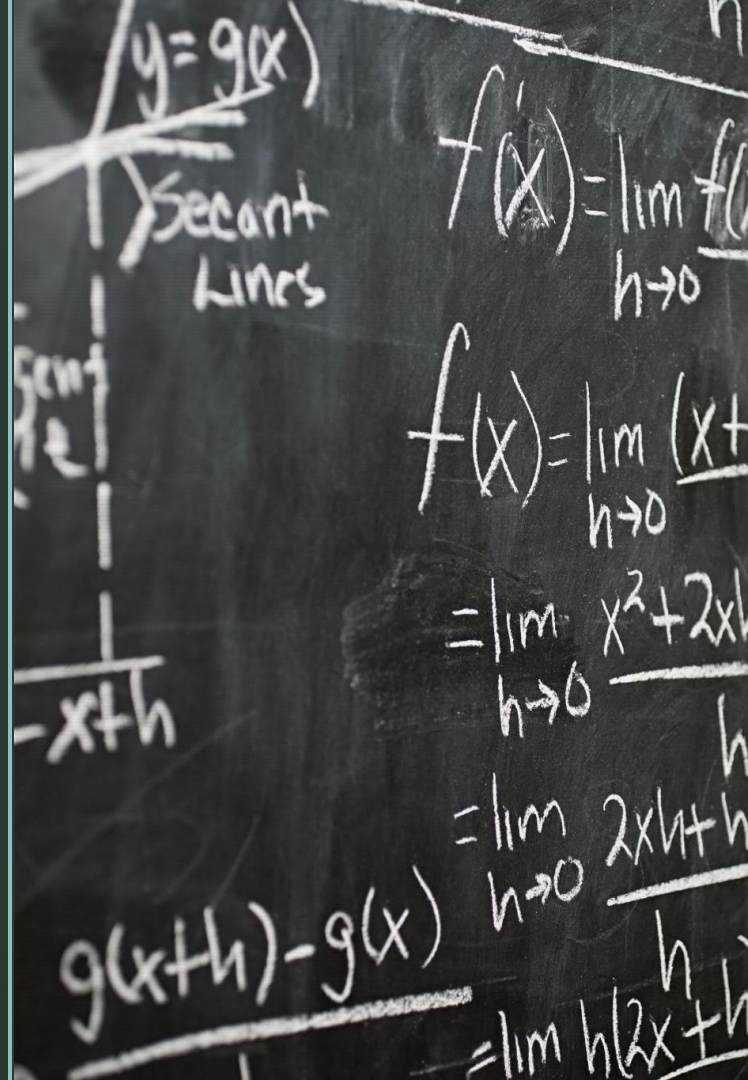 y=g(x)
Secant
Lines
-x+h
g(x+h)-g(x)
f'(x)=lim f(
h→0
f(x)=lim (x+
h→0
=lim x²+2xh
h→0 h
=lim 2xh+h
h→0 h
=lim h(2x+h